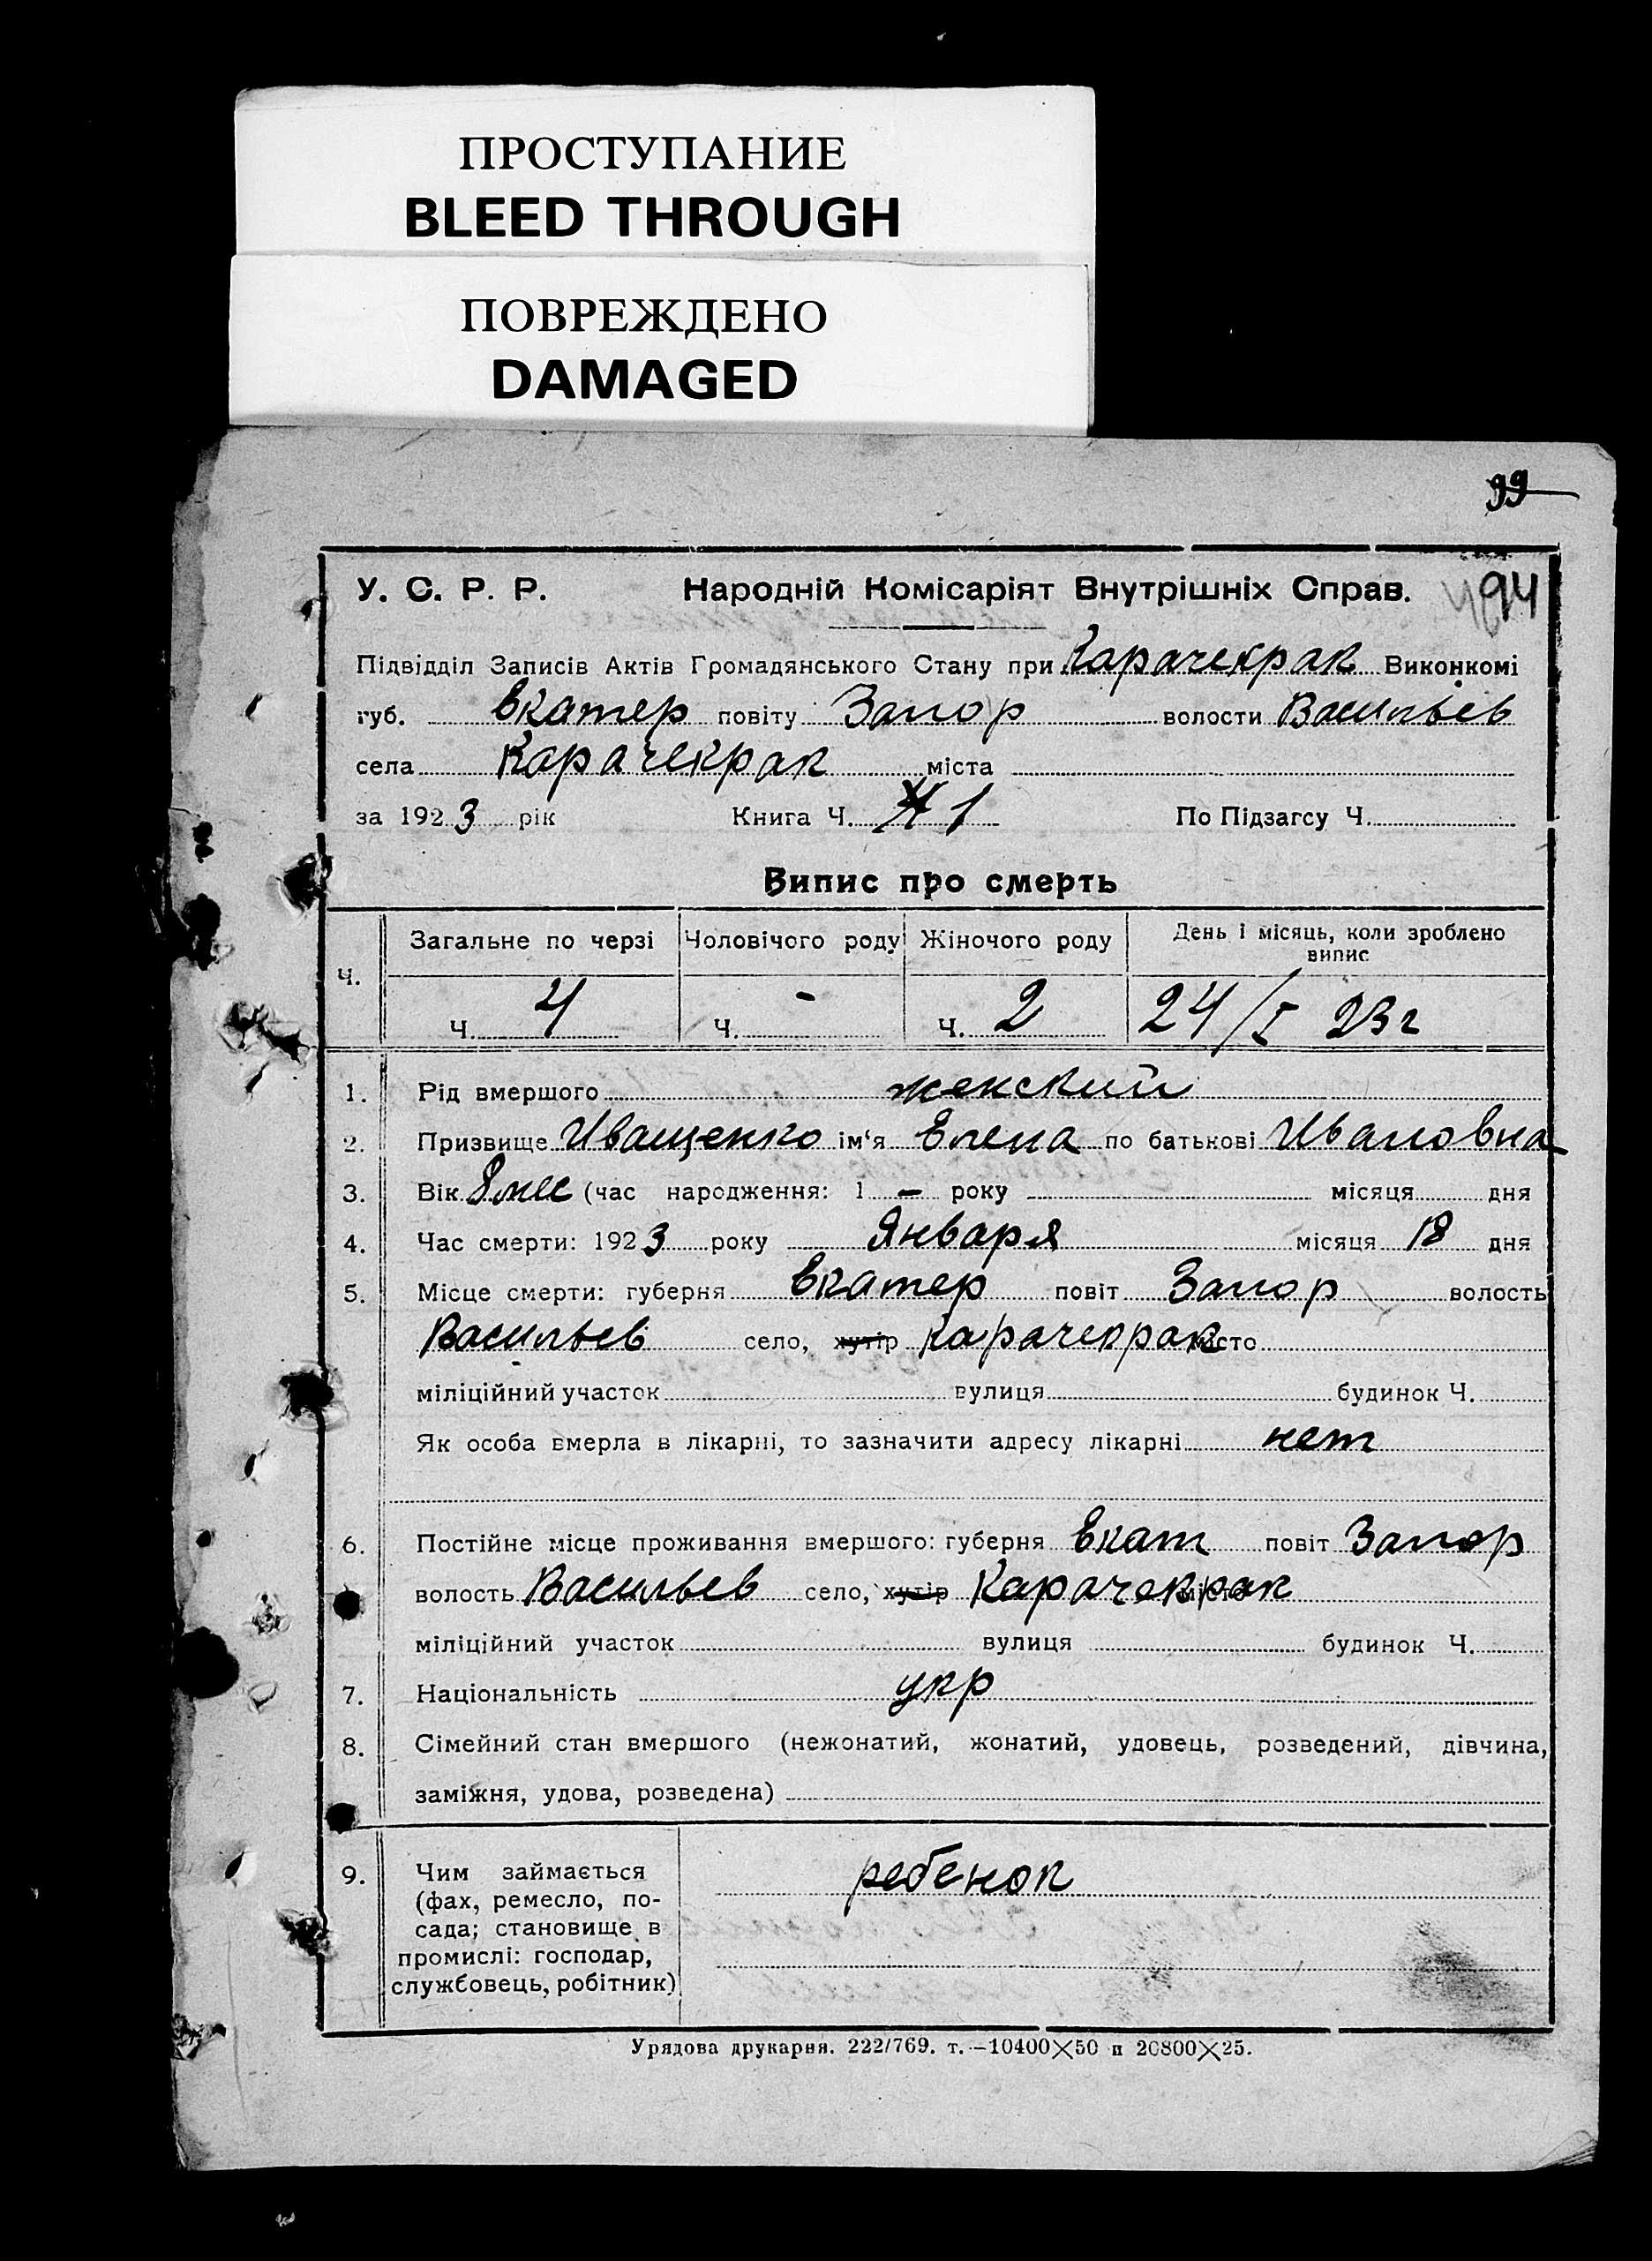 ПРОСТУПАНИЕ
BLEED THROUGH
ПОВРЕЖДЕНО
DAMAGED
99
У. С. Р. Р. Народній Комісаріят Внутрішніх Справ. 94
Підвідділ Записів Актів Громадянського Стану при Карачекрак Виконкомі
губ. Екатер повіту Запор волости Васильев
села Карачекрак міста
за 1923 рік Книга Ч. 1 По Підзагсу Ч.
Випис про смерть
Ч. Загальне по черзі Чоловічого роду Жіночого роду День і місяць, коли зроблено випис
Ч. 4 Ч. - Ч. 2 24/I 23 г
1. Рід вмершого женский
2. Призвище Иващенко ім‘я Елена по батькові Ивановна
3. Вік 8 мес (час народження: 1 — року місяця дня
4. Час смерти: 1923 року Января місяця 18 дня
5. Місце смерти: губерня Екатер повіт Запор волость
Васильев село, хутір Карачекрак місто
міліційний участок вулиця будинок Ч.
Як особа вмерла в лікарні, то зазначити адресу лікарні нет
6. Постійне місце проживання вмершого: губерня Екат повіт Запор
волость Васильев село, хутір Карачекрак місто
міліційний участок вулиця будинок Ч.
7. Національність укр
8. Сімейний стан вмершого (нежонатий, жонатий, удовець, розведений, дівчина,
заміжня, удова, розведена)
9. Чим займається ребенок
(фах, ремесло, по-
сада; становище в
промислі: господар,
службовець, робітник)
Урядова друкарня. 222/769. т.—10400×50 и 20800×25.